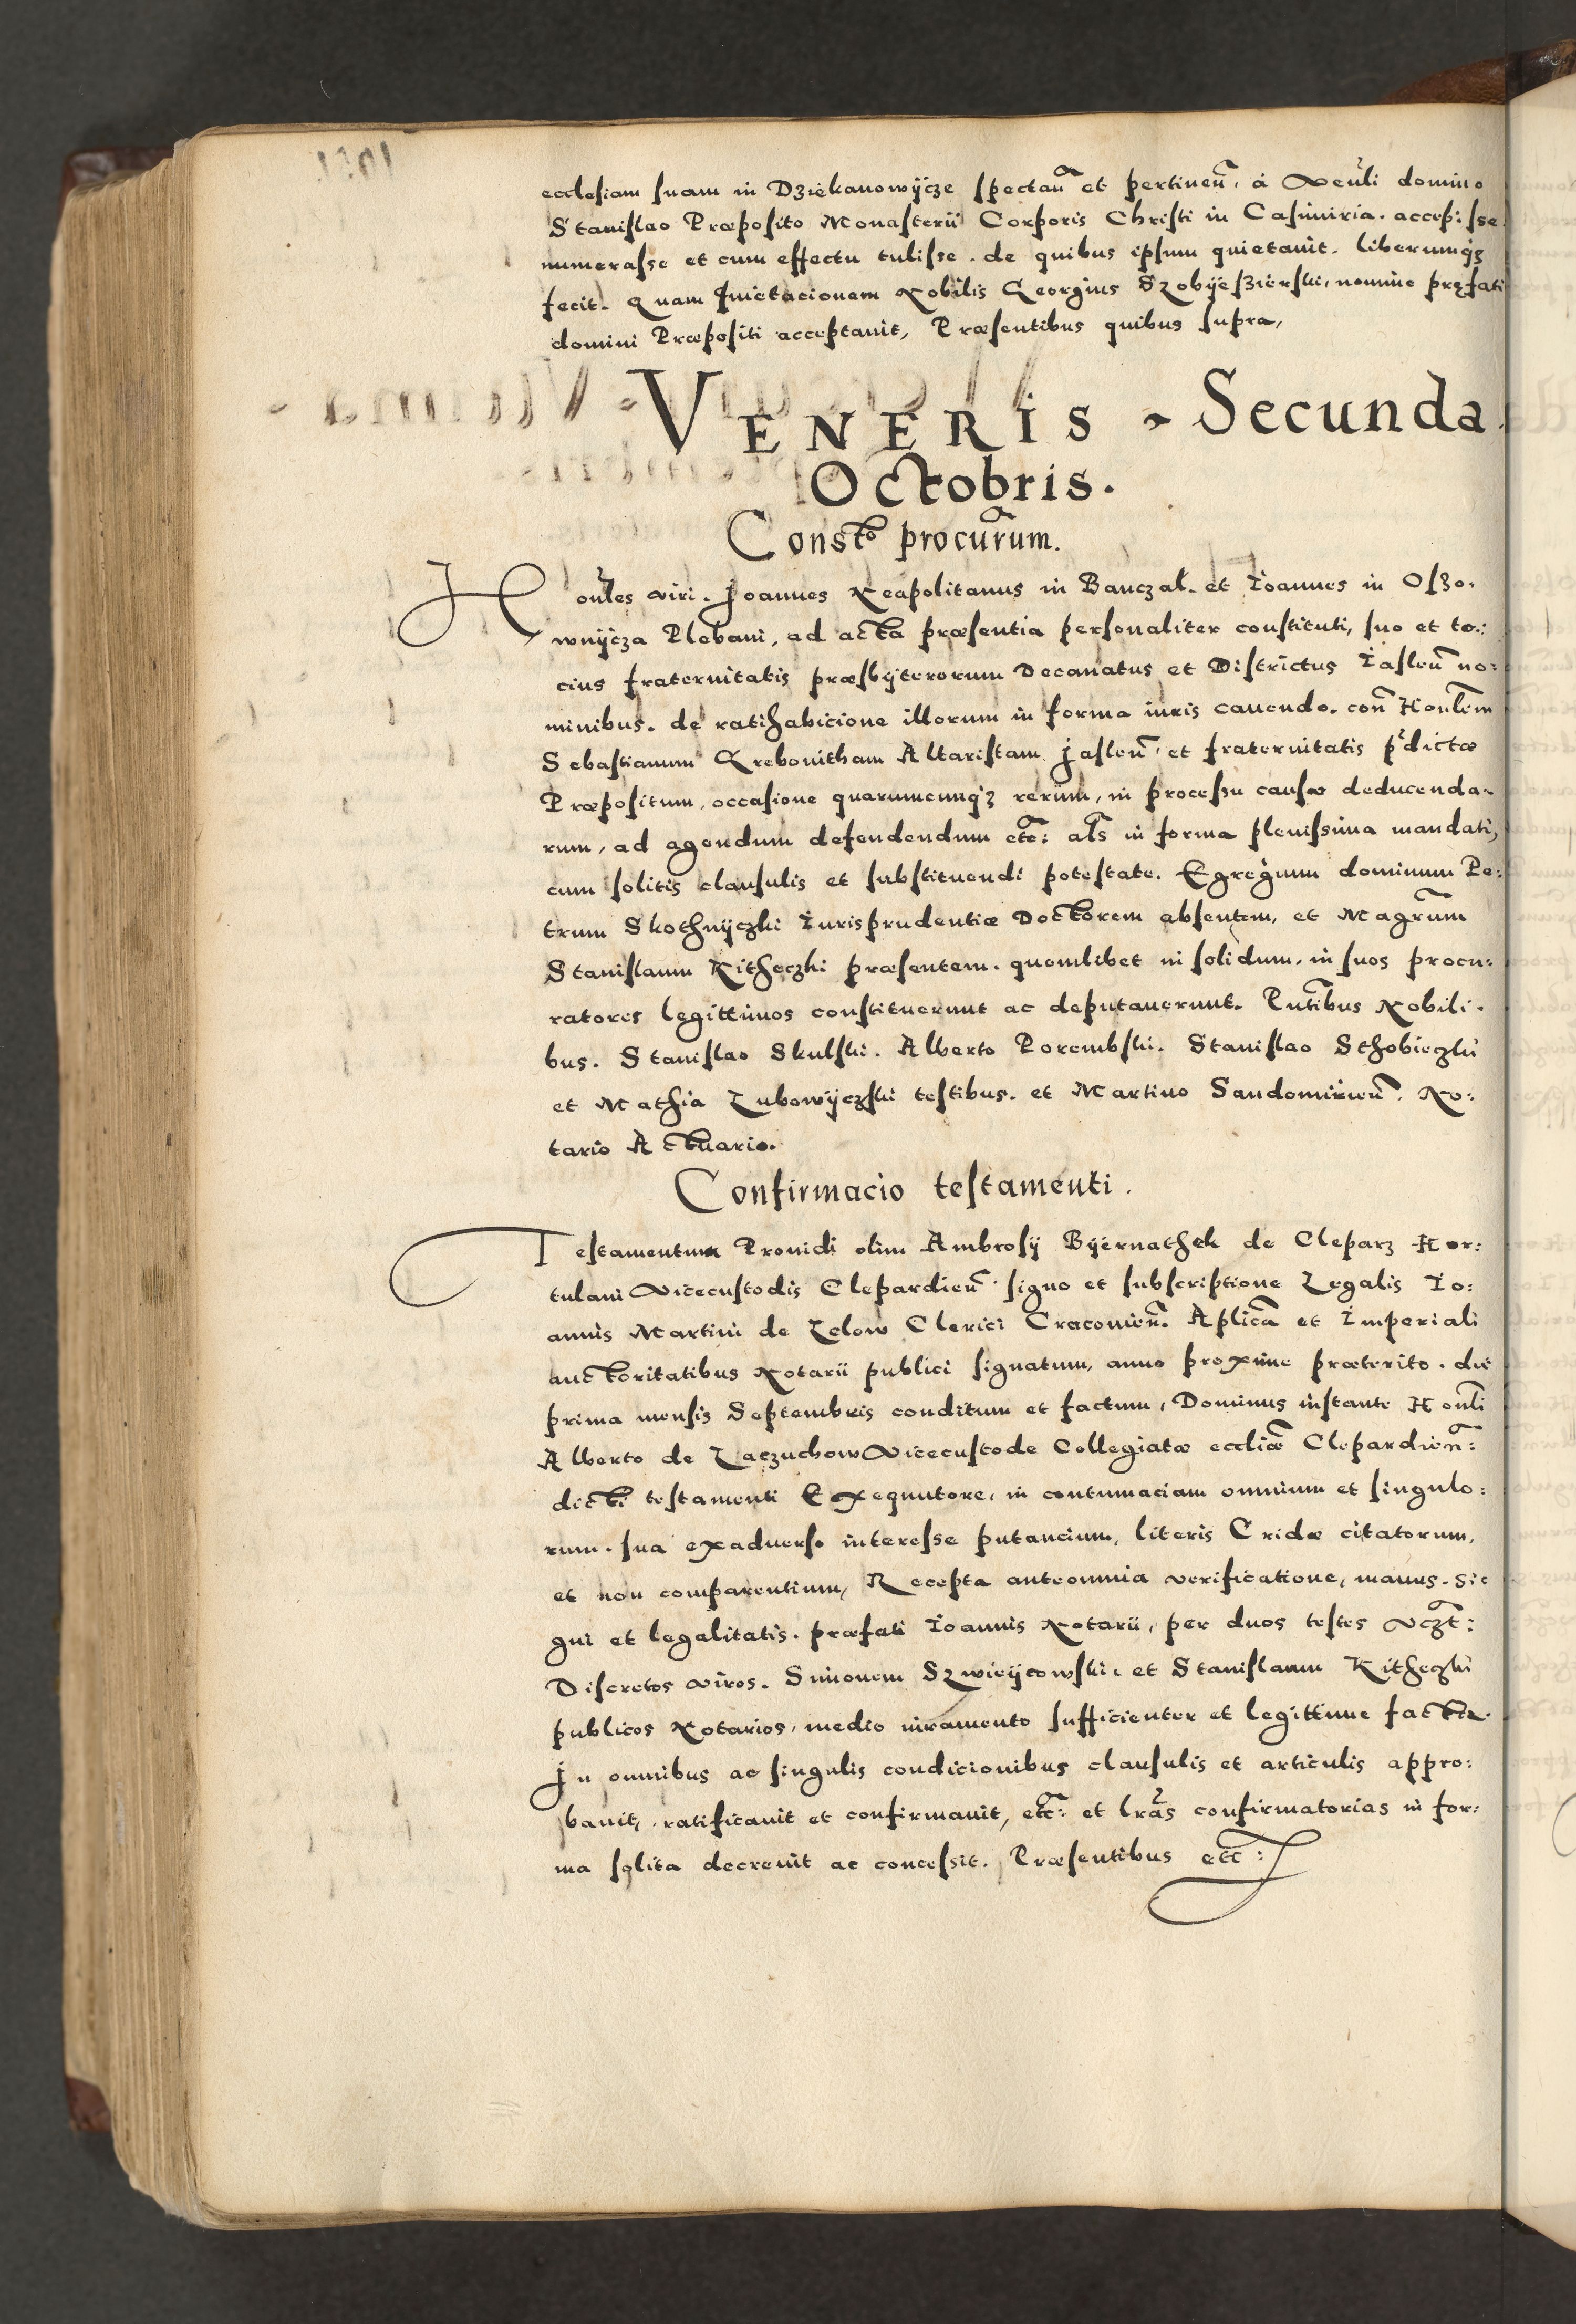 ecclesiam suam in Dziekanowÿcze spectan̄ et pertinen̄, á Ven̄li domino
Stanislao Præposito Monasterii Corporis Christi in Casimiria. accepisse
numerasse et cum effectu tulisse. de quibus ipsum quietauit. liberumq;
fecit. Quam Quietacionem Nobilis Georgius nomine præfati
domini Præpositi acceptauit, Præsentibus quibus supra,
VENERIS - Secunda
Octobris.
Const͞o procur̄um.
Hon̄les viri. Joannes Neapolitanus in Banczal. et Ioannes in Osso-
wnÿcza Plebani, ad acta præsentia personaliter constituti, suo et to:
cius fraternitatis præsbÿterorum Decanatus et Districtus Iaslen̄ no:
minibus. de ratihabicione illorum in forma iuris cauendo. con̄ Honlem̄
Sebastianum Grebonitham Altaristam Jaslen̄, et fraternitatis p̄dictæ
Præpositum, occasione quarumcunq; rerum, in processu causæ deducenda-
rum, ad agendum defendendum etc̄: al̄s in forma plenissima mandati,
cum solitis clausulis et substituendi potestate. Egregium dominum Pe:
trum Skothnÿczki Iurisprudentiæ Doctorem absentem, et Magr̄um
Stanislaum Kitheczki præsentem. quemlibet in solidum, in suos procu:
ratores legittimos constituerunt ac deputauerunt. Pn̄tibus Nobili-
bus. Stanislao Skulski. Alberto Porembski. Stanislao Sthobieczki
et Mathia Lubowÿczski testibus. et Martino Sandomirien̄. No:
tario Actuario.
Confirmacio testamenti.
Testamentum Prouidi olim Ambrosÿ Bÿernathek de Cleparz Hor:
tulani Vicecustodis Clepardien̄ signo et subscriptione Legalis Io:
annis Martini de Zelow Clerici Cracouien̄. Aplicā et Imperiali
auctoritatibus Notarii publici signatum, anno proxime præterito. die
prima mensis Septembris conditum et factum, Dominus instante Honl̄i
Alberto de Laczuchow Vicecustode Collegiatæ eccliǣ Clepardien̄:
dicti testamenti Exequutore, in contumaciam omnium et singulo:
rum. sua exaduerso interesse putancium, literis Cridæ citatorum,
et non comparentium, Recepta anteomnia verificatione, manus. si:
gni et legalitatis. præfati Ioannis Notarii, per duos testes vcz̄t:
Discretos viros. Simonem Szwieÿcowski. et Stanislaum Kitheczki
publicos Notarios, medio iuramento sufficienter et legittime facta.
Jn omnibus ac singulis condicionibus clausulis et articulis appro:
bauit, ratificauit et confirmauit, etc̄: et lr̄as confirmatorias in for:
ma solita decreuit ac concessit. Præsentibus etc̄: